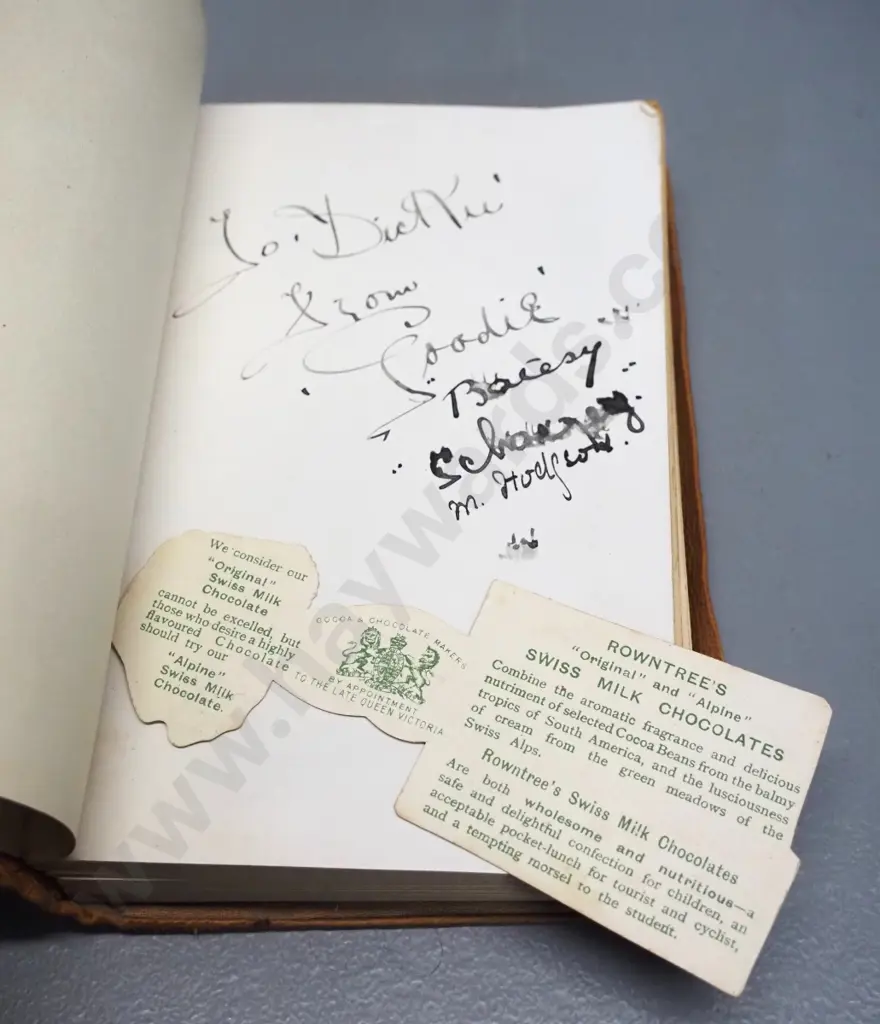 To. 'Dickie'
from
'Goodie'
"Batesy"
"Schanzey."
M. Hodgson.
We consider our
"Original"
Swiss Milk
Chocolate
cannot be excelled, but
those who desire a highly
flavoured Chocolate
should try our
"Alpine"
Swiss Milk
Chocolate.
COCOA & CHOCOLATE MAKERS
BY APPOINTMENT
TO THE LATE QUEEN VICTORIA
ROWNTREE'S
"Original" and "Alpine"
SWISS MILK CHOCOLATES
Combine the aromatic fragrance and delicious
nutriment of selected Cocoa Beans from the balmy
tropics of South America, and the lusciousness
of cream from the green meadows of the
Swiss Alps.
Rowntree's Swiss Milk Chocolates
Are both wholesome and nutritious—a
safe and delightful confection for children, an
acceptable pocket-lunch for tourist and cyclist,
and a tempting morsel to the student.
www.haywards.co